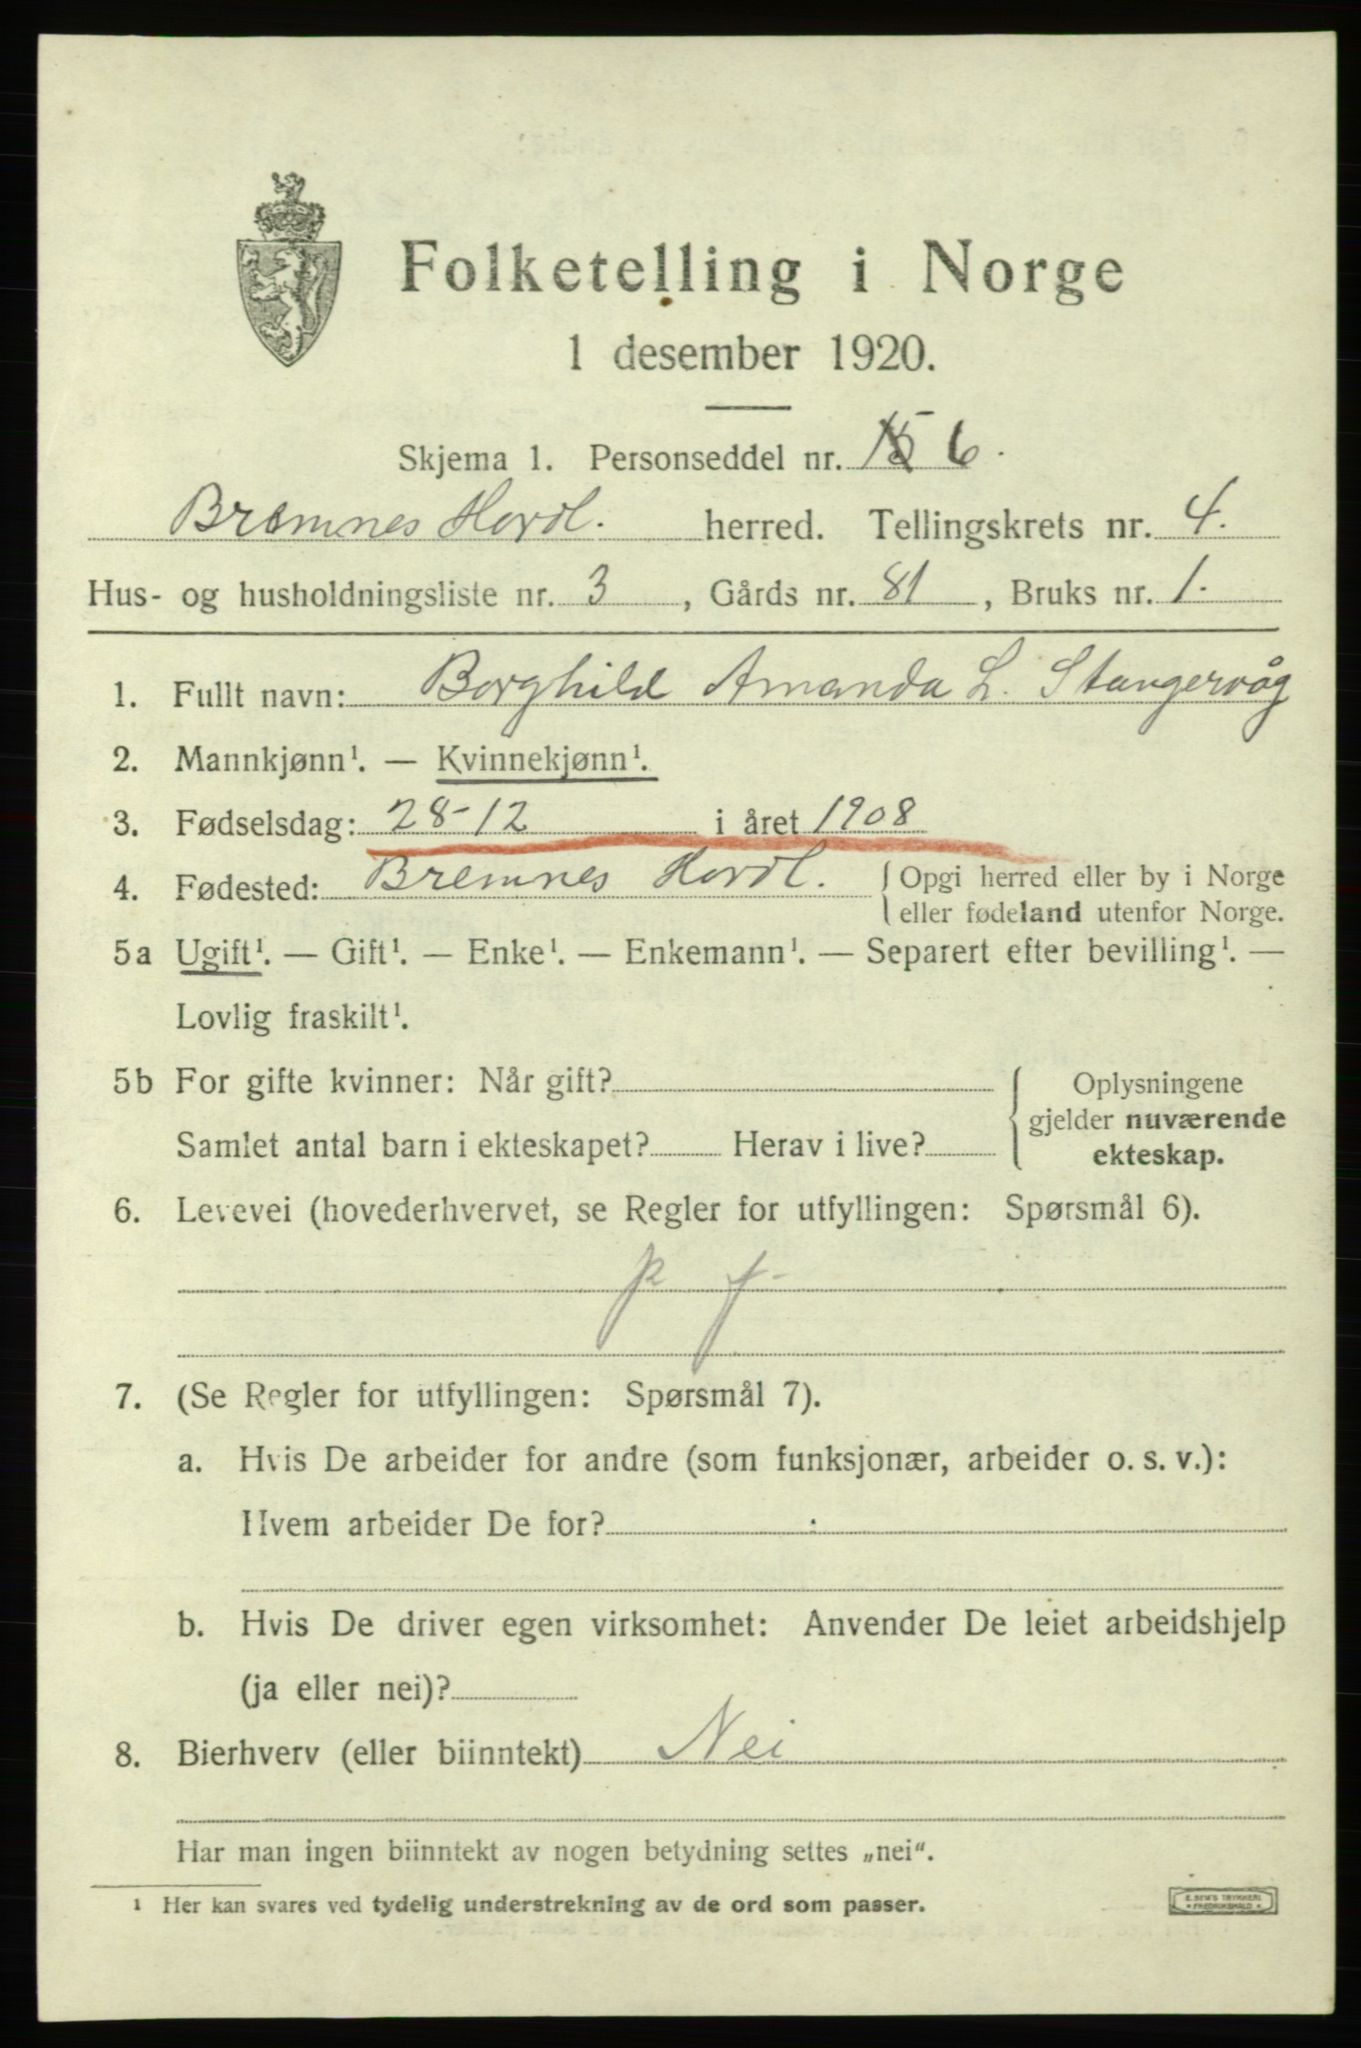 Folketelling i Norge
1 desember 1920.
Skjema 1. Personseddel nr. 6.
Bremnes Hordl. herred. Tellingskrets nr. 4.
Hus- og husholdningsliste nr. 3, Gårds nr. 81, Bruks nr. 1.
1. Fullt navn: Borghild Amanda L. Stangervåg
2. Mannkjønn¹. — Kvinnekjønn¹.
3. Fødselsdag: 28-12 i året 1908
4. Fødested: Bremnes Hordl. {Opgi herred eller by i Norge
eller fødeland utenfor Norge.
5a Ugift¹. — Gift¹. — Enke¹. — Enkemann¹. — Separert efter bevilling¹. —
Lovlig fraskilt¹.
5b For gifte kvinner: Når gift?
Samlet antal barn i ekteskapet? Herav i live?
Oplysningene
gjelder nuværende
ekteskap.
6. Levevei (hovederhvervet, se Regler for utfyllingen: Spørsmål 6).
p f
7. (Se Regler for utfyllingen: Spørsmål 7).
a. Hvis De arbeider for andre (som funksjonær, arbeider o. s. v.):
Hvem arbeider De for?
b. Hvis De driver egen virksomhet: Anvender De leiet arbeidshjelp
(ja eller nei)?
8. Bierhverv (eller biinntekt) Nei
Har man ingen biinntekt av nogen betydning settes „nei“.
¹ Her kan svares ved tydelig understrekning av de ord som passer.
E. SEM'S TRYKKERI
• FREDRIKSHALD •